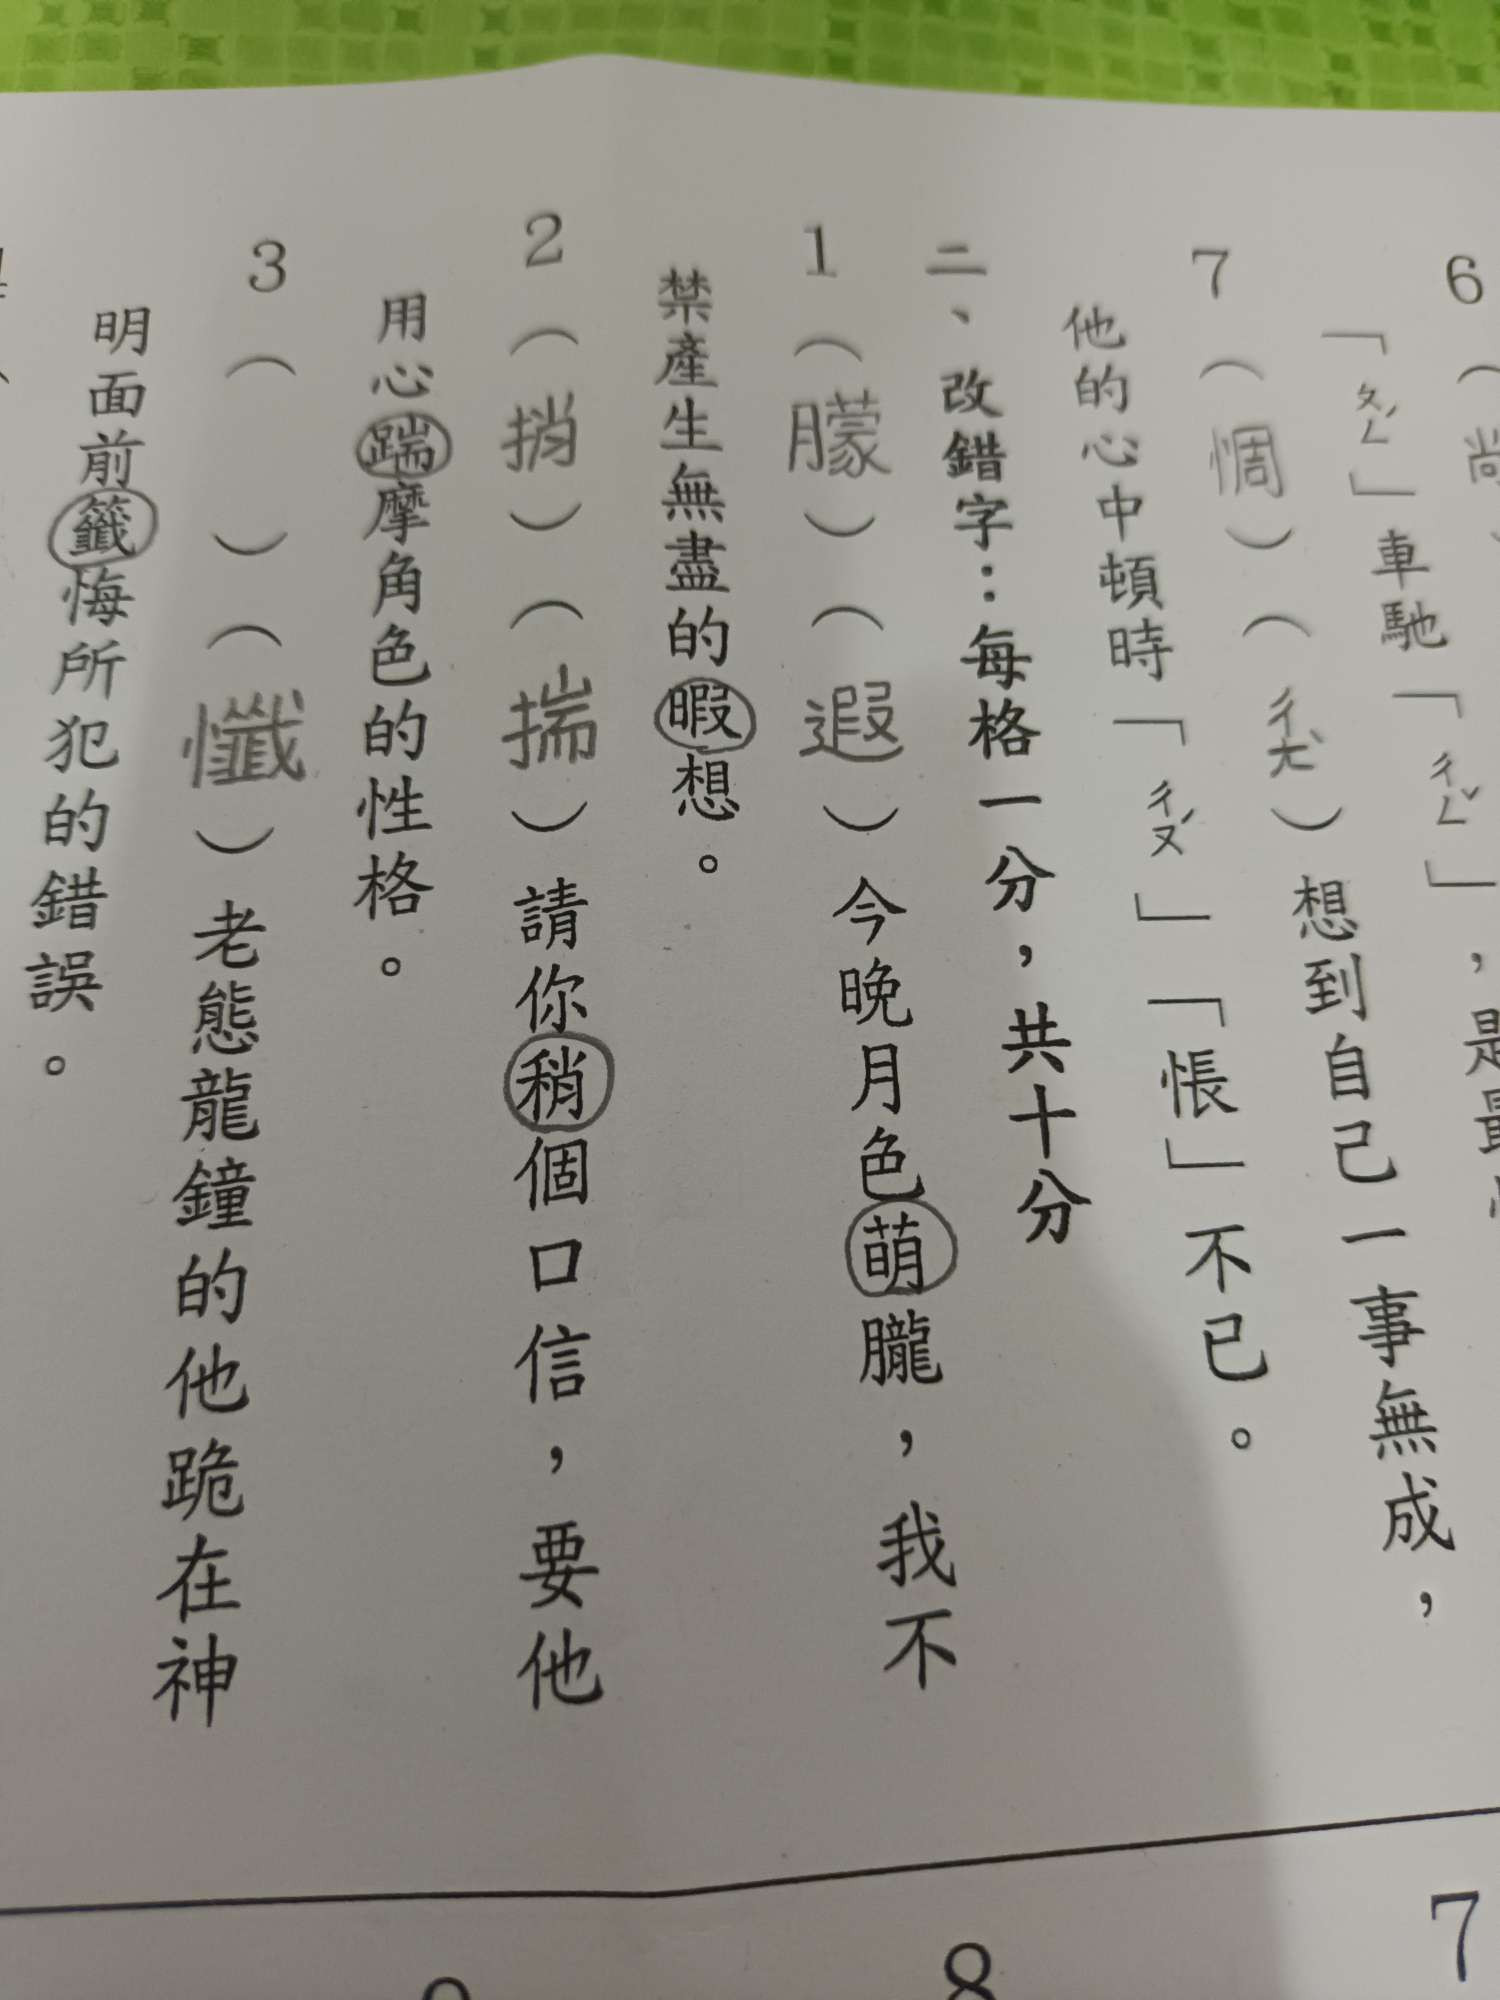 6（尚
「ㄆㄥˊ」車馳「ㄔㄥˇ」，是最
7（惆）（ㄔㄤˋ）想到自己一事無成，
他的心中頓時「ㄔㄡˊ」「悵」不已。
二、改錯字：每格一分，共十分
1（朦）（遐）今晚月色萌朧，我不
禁產生無盡的暇想。
2（捎）（揣）請你稍個口信，要他
用心踹摩角色的性格。
3（　）（懺）老態龍鐘的他跪在神
明面前籤悔所犯的錯誤。
7
8